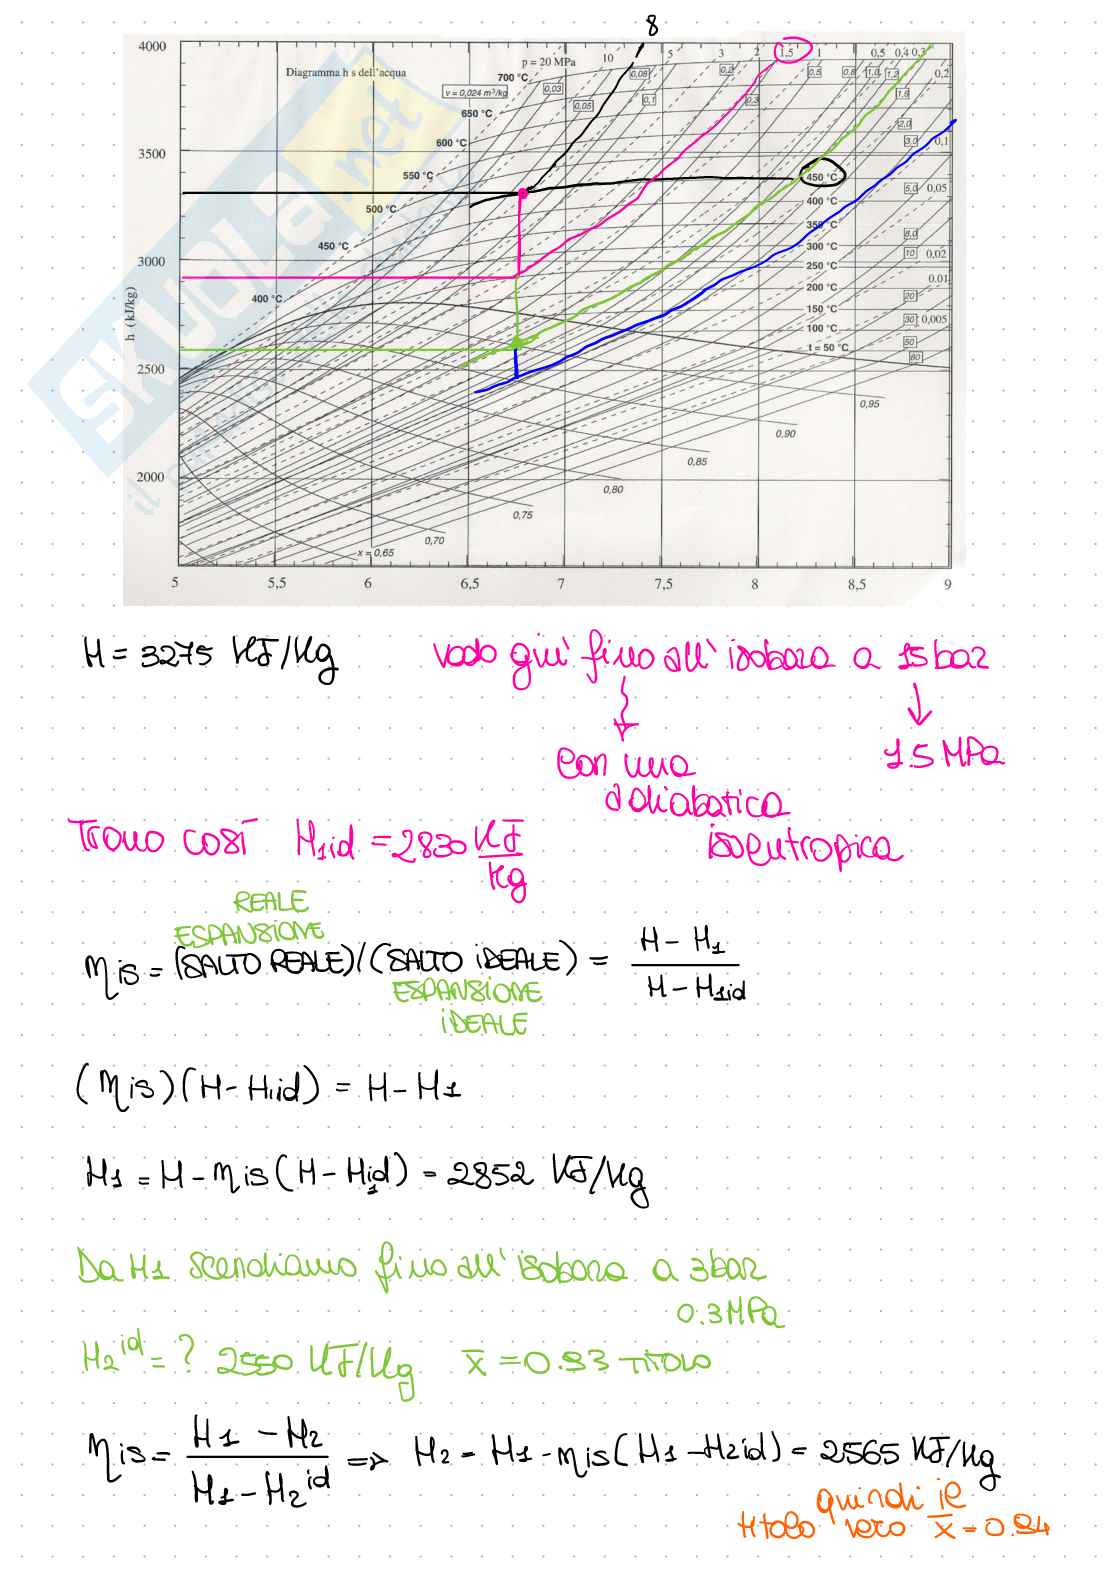 8
4000
Diagramma h s dell'acqua
p = 20 MPa
10
5
3
2
1,5
1
0,5
0,4
0,3
700 °C
v = 0,024 m³/kg
0,03
0,05
0,08
0,1
0,2
0,3
0,5
0,8
1,0
1,2
0,2
1,5
650 °C
2,0
600 °C
3,0
0,1
3500
550 °C
450 °C
5,0
0,05
500 °C
400 °C
350 °C
8,0
450 °C
300 °C
10
0,02
3000
250 °C
0.01
400 °C
200 °C
20
150 °C
30
0,005
100 °C
50
t = 50 °C
80
h (kJ/kg)
2500
0,95
0,90
0,85
2000
0,80
0,75
0,70
x = 0,65
5
5,5
6
6,5
7
7,5
8
8,5
9
SKUOLA.net
H = 3275 KJ/Kg
vado giu' fino all'isobara a 15bar
1.5 MPa
con una
adiabatica
isoentropica
Trovo così H1id = 2830 KJ/Kg
REALE
ESPANSIONE
ηis = (SALTO REALE)/(SALTO iDEALE) = (H - H1)/(H - H1id)
ESPANSIONE
iDEALE
(ηis)(H - H1id) = H - H1
H1 = H - ηis(H - H1id) = 2852 KJ/Kg
Da H1 scendiamo fino all'isobara a 3bar
0.3MPa
H2^id = ? 2550 KJ/Kg x̄ = 0.93 TITOLO
ηis = (H1 - H2)/(H1 - H2^id) => H2 = H1 - ηis(H1 - H2id) = 2565 KJ/Kg
quindi il
titolo vero x̄ = 0.94